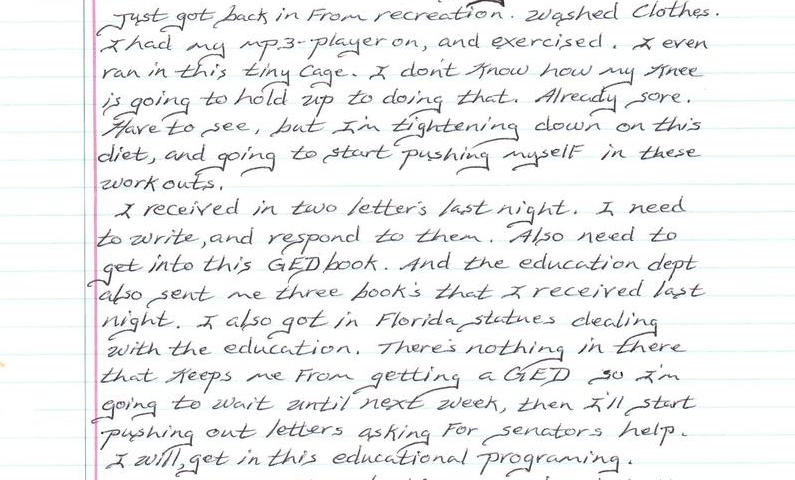 Just got back in From recreation. Washed Clothes.
I had my mp3-player on, and exercised. I even
ran in this tiny Cage. I don't Know how my Knee
is going to hold up to doing that. Already sore.
Have to see, but I'm tightening down on this
diet, and going to start pushing myself in these
workouts.
I received in two letter's last night. I need
to write, and respond to them. Also need to
get into this GED book. And the education dept
also sent me three book's that I received last
night. I also got in Florida statues dealing
with the education. There's nothing in there
that Keeps me From getting a GED so I'm
going to wait until next week, then I'll start
pushing out letters asking For senators help.
I will, get in this educational programing.